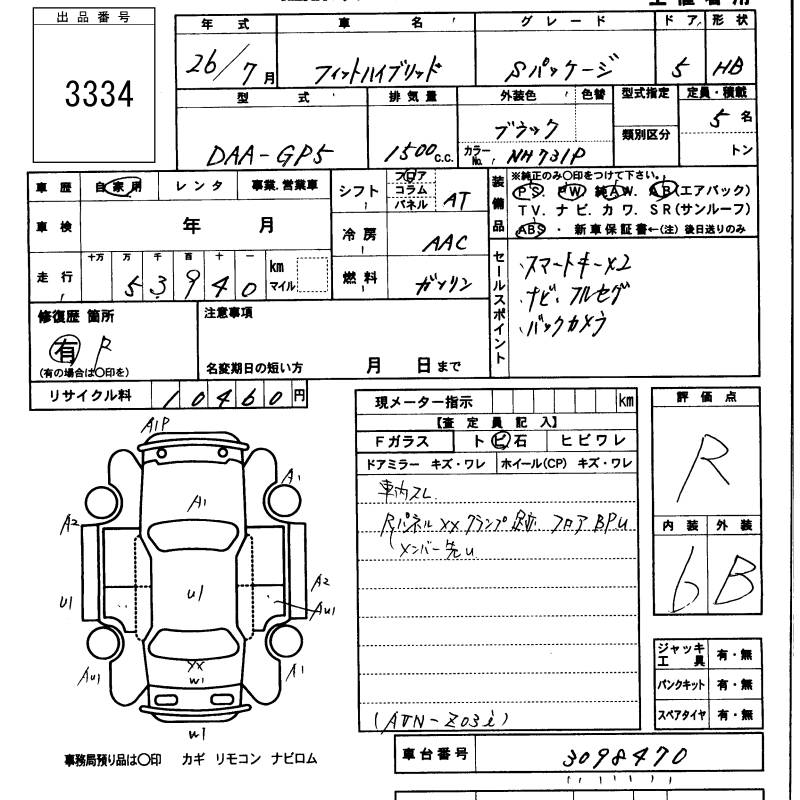 出品番号
3334
年式 車名 グレード ドア 形状
26/7月 フィットハイブリッド Sパッケージ 5 HB
型式 排気量 外装色 色替 型式指定 定員・積載
DAA-GP5 1500c.c. ブラック 類別区分 5名
カラーNo. NH731P トン
車歴 自家用 レンタ 事業.営業車
シフト フロア コラム パネル AT
装備品 ※純正のみ○印をつけて下さい。
PS. PW. 純AW. AB(エアバック)
TV. ナビ. カワ. SR(サンルーフ)
ABS ・ 新車保証書←(注) 後日送りのみ
車検 年 月
冷房 AAC
走行 十万 万 千 百 十 一
53940 km マイル
燃料 ガソリン
セールスポイント
・スマートキー×2
・ナビ.フルセグ
・バックカメラ
修復歴 箇所
有 R
(有の場合は○印を)
注意事項
名変期日の短い方 月 日まで
リサイクル料 10460円
現メーター指示 km
【査定員記入】
Fガラス ト ビ 石 ヒビワレ
ドアミラー キズ・ワレ ホイール(CP) キズ・ワレ
車内スレ
Rパネル XX クランプ跡 フロア BPU
メンバー先U
(AUN-Z03i)
評価点
R
内装 外装
6 B
ジャッキ工具 有・無
パンクキット 有・無
スペアタイヤ 有・無
A1P
A1
A1
A2
U1
U1
A2
AU1
AU1
XX
W1
A1
U1
事務局預り品は○印 カギ リモコン ナビロム
車台番号 3098470